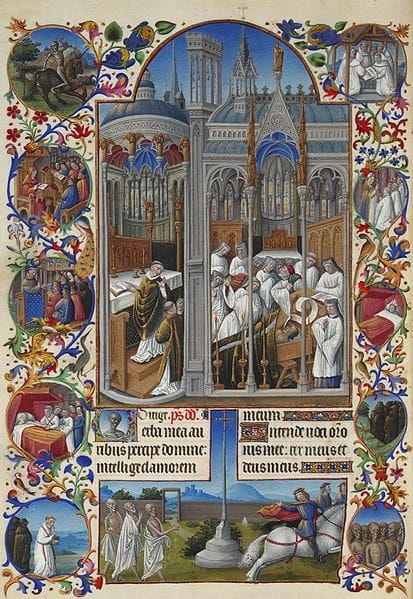 Dirige. ps. dd.
Verba mea au
ribus percipe domine:
intellige clamorem
meum
Intende uoci orō
nis mee: rex meus et
deus meus.